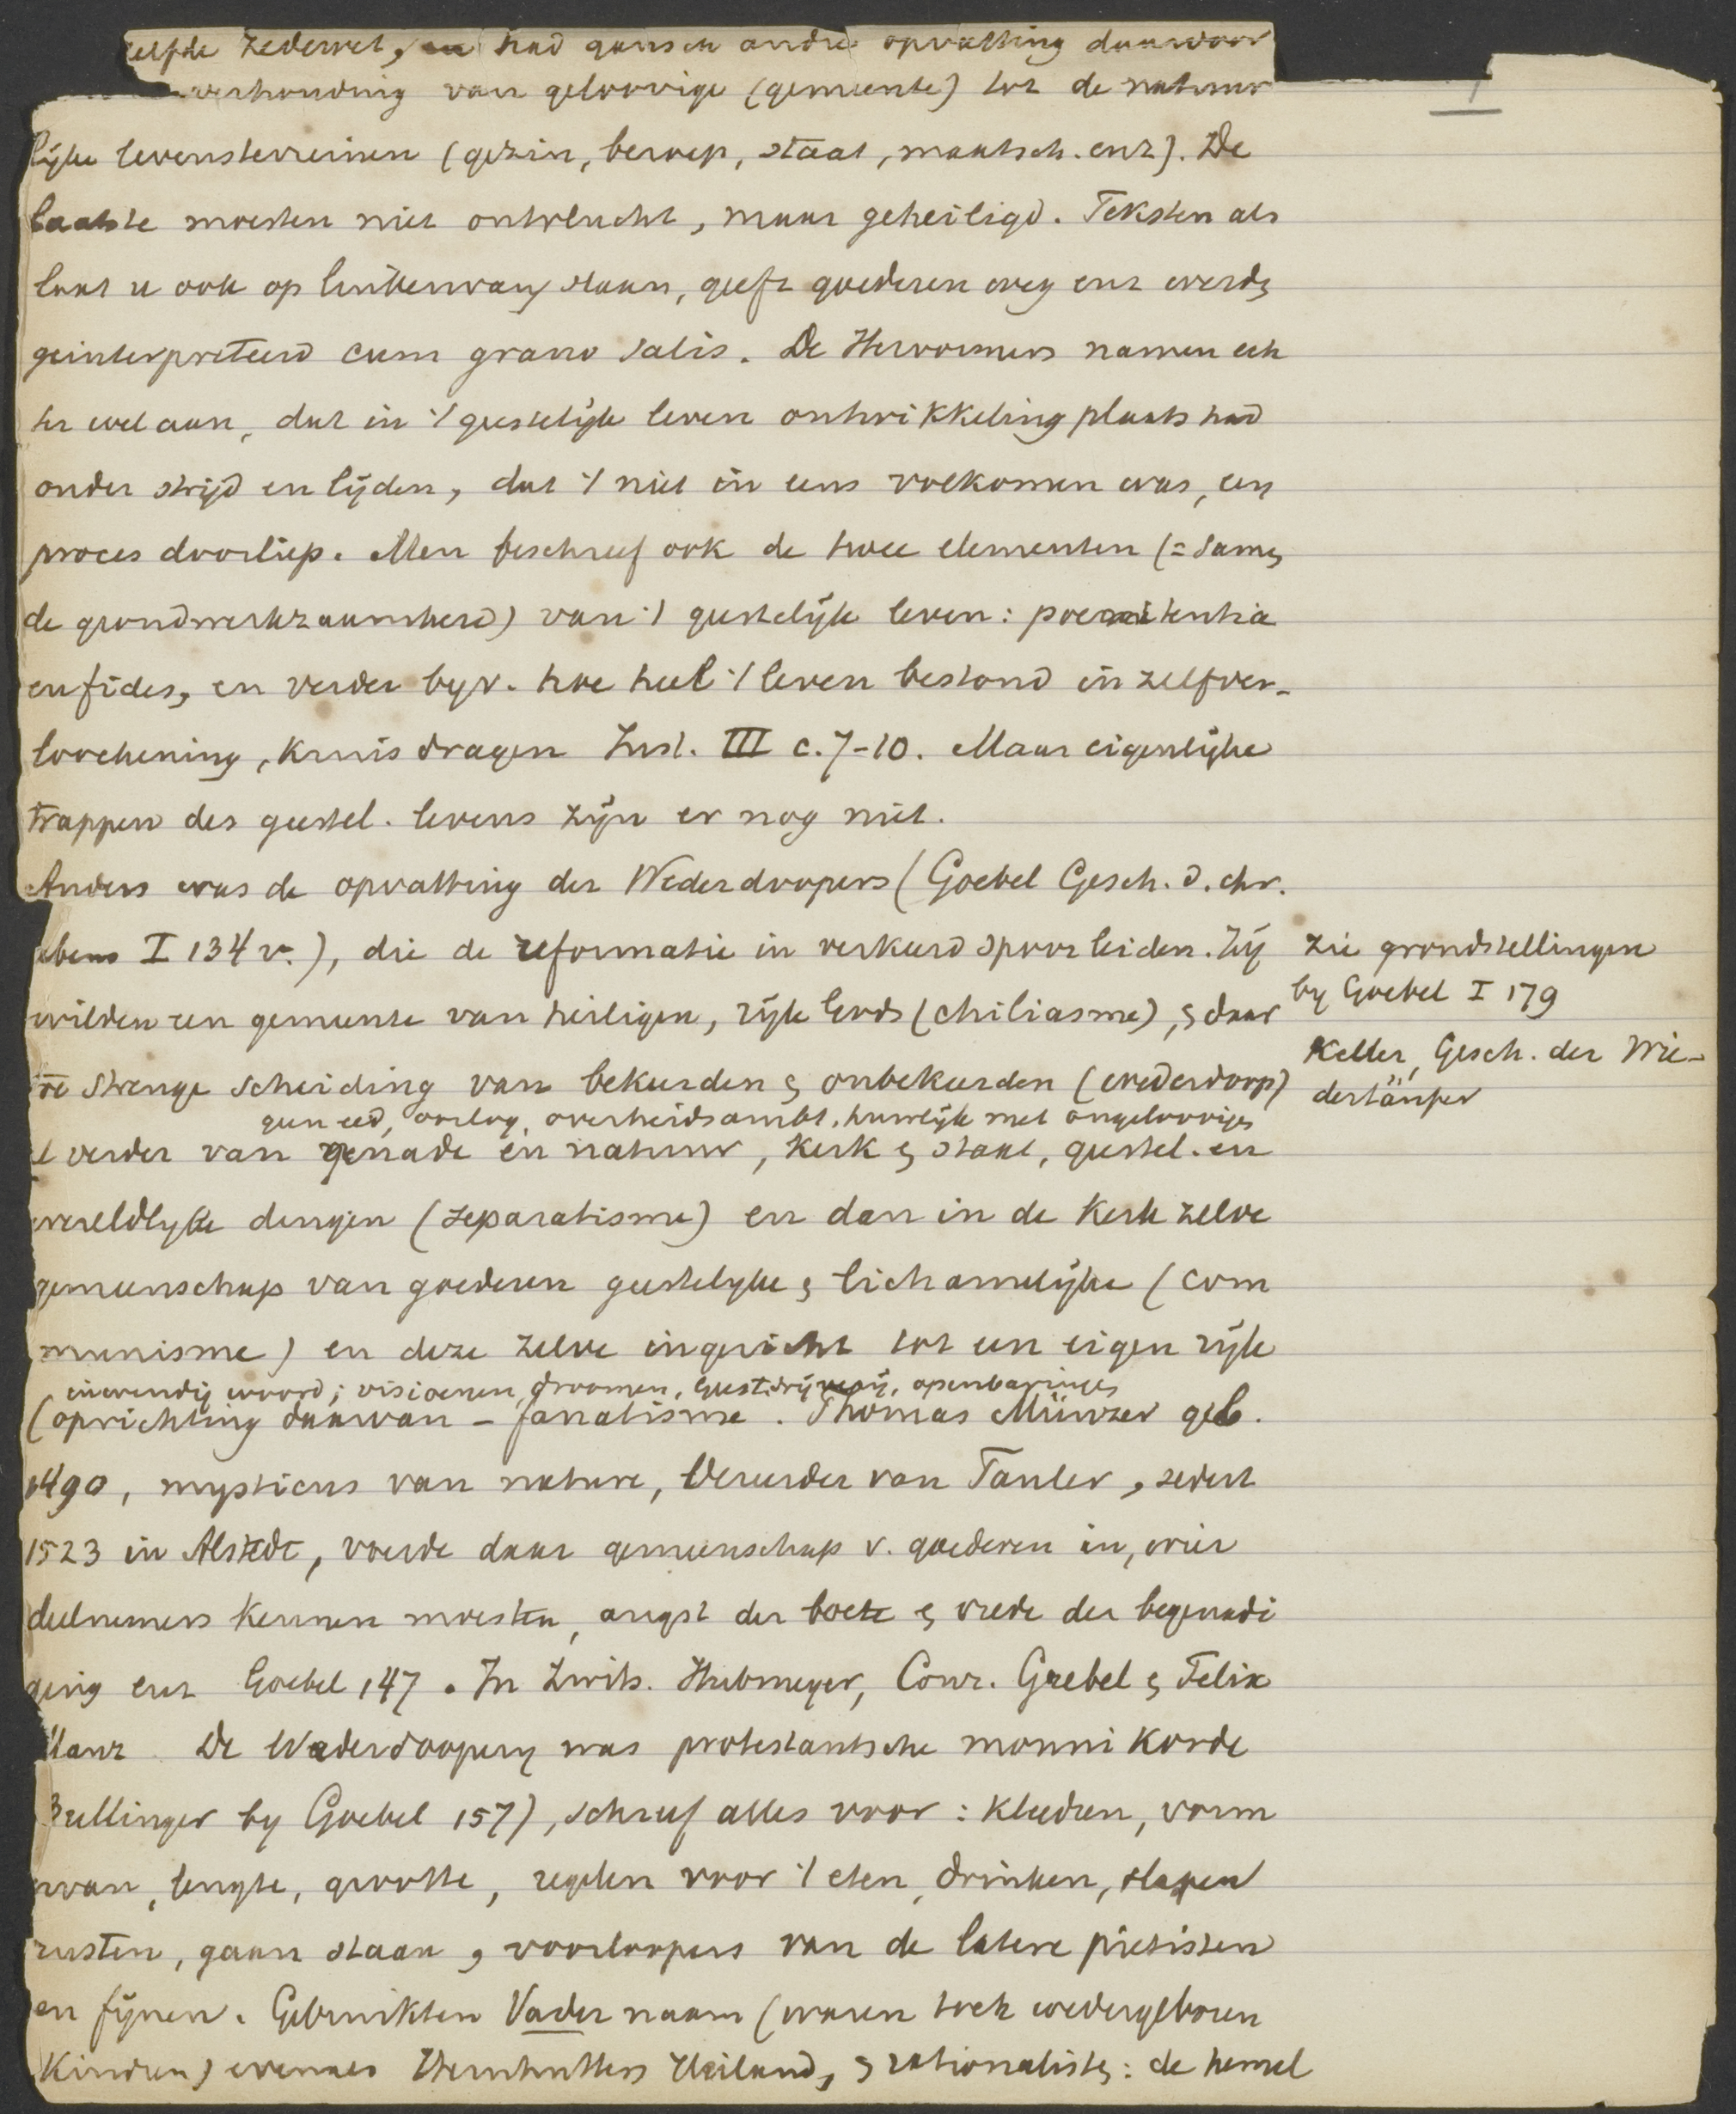 zelfde zedewet, en had gansch andre opvatting daarvoor
verhouding van geloovige (gemeente) tot de natuur
lijke levensterreinen (gezin, beroep, staat, maatsch. enz). De
laatste moesten niet ontvlucht, maar geheiligd. Teksten als
laat u ook op linkerwang slaan, geeft goederen weg enz werdn
geinterpreteerd cum grano salis. De Hervormers namen ech
ter wel aan, dat in 't geestelijk leven ontwikkeling plaats had
onder strijd en lijden, dat 't niet in eens volkomen was, een
proces doorliep. Men beschreef ook de twee elementen (= samen
de grondwerkzaamheid) van 't geestelijk leven: poenitentia
en fides, en verder byv. hoe heel 't leven bestond in zelfver-
loochening, kruisdragen Inst. III c. 7-10. Maar eigenlijke
trappen des geestel. levens zijn er nog niet.
Anders was de opvatting der Wederdoopers (Goebel Gesch. d. chr.
Lebens I 134 v.), die de reformatie in verkeerd spoor leiden. Zij
wilden een gemeente van heiligen, rijk Gods (chiliasme), en daar
strenge scheiding van bekeerden en onbekeerden (wederdoop)
geen eed, oorlog, overheidsambt, huwelijk met ongeloovigen
verder van genade en natuur, kerk en staat, geestel. en
wereldlyke dingen (separatisme) en dan in de kerk zelve
gemeenschap van goederen geestelyke en lichamelijke (com
munisme) en deze zelve ingericht tot een eigen rijk
inwendig woord; visioenen, droomen, geestdrijverij, openbaringen
(oprichting daarvan - fanatisme. Thomas Münzer geb.
1490, mysticus van nature, vereerder van Tauler, sedert
1523 in Alstedt, voerde daar gemeenschap v. goederen in, wier
deelnemers kennen moesten, angst der boete en vrede der begenadi
ging enz Goebel 147. In Zwits. Hubmeyer, Conr. Grebel en Felix
Manz De Wederdoopery was protestantsche monnikorde
Bullinger by Goebel 157), schreef alles voor: kleederen, vorm
ervan, lengte, grootte, regelen voor 't eten, drinken, slapen
rusten, gaan staan, voorloopers van de latere pietisten
en fijnen. Gebruikten Vader naam (waren toch wedergeboren
kinderen) evenals Hernhutters Heiland, en rationalisten: de hemel
zie grondstellingen
by Goebel I 179
Keller, Gesch. der Wie-
dertäufer